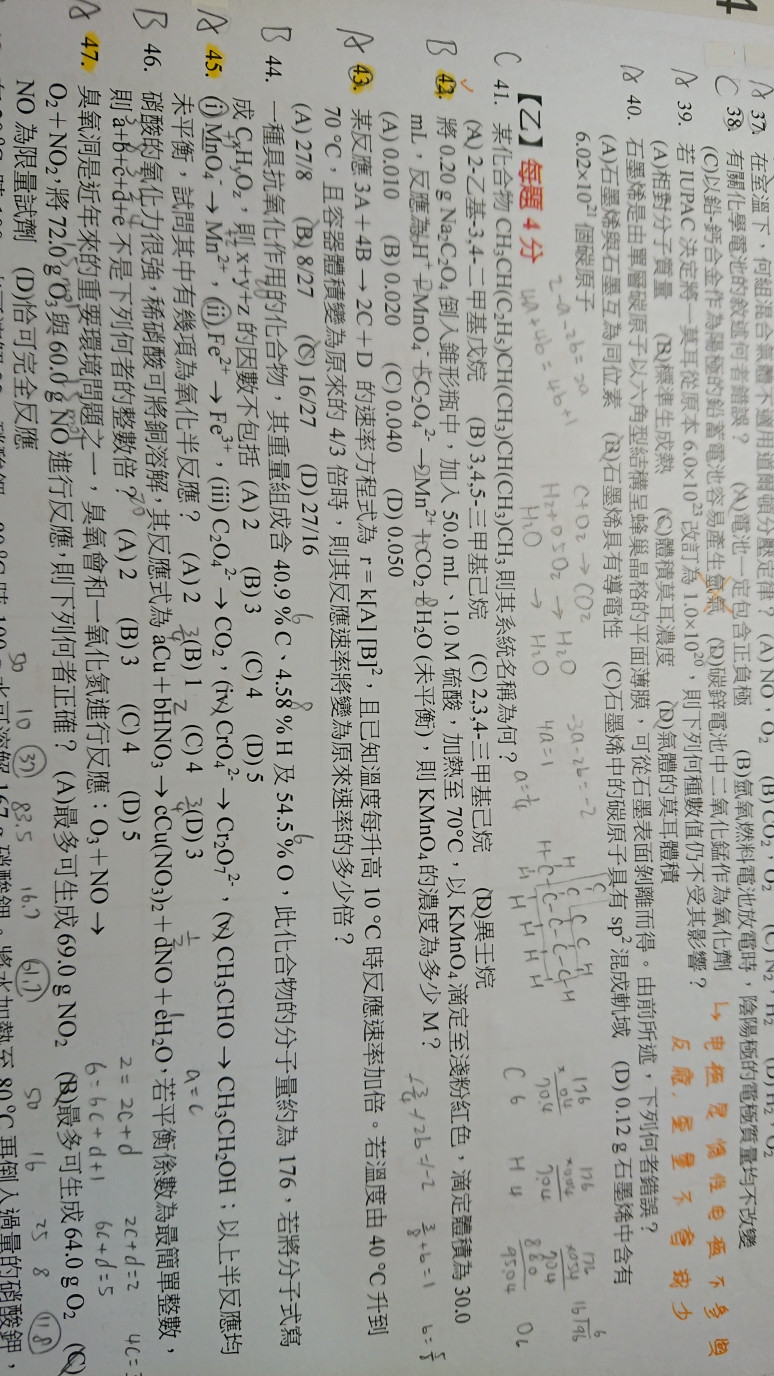 37. 在室溫下，何組混合氣體不適用道爾頓分壓定律？ (A) NO，O₂ (B) CO₂，O₂ (C) N₂，H₂ (D) H₂，O₂
C 38. 有關化學電池的敘述何者錯誤？ (A)電池一定包含正負極 (B)氫氧燃料電池放電時，陰陽極的電極質量均不改變
(C)以鉛鈣合金作為陽極的鉛蓄電池容易產生氫氣 (D)碳鋅電池中二氧化錳作為氧化劑
39. 若 IUPAC 決定將一莫耳從原本 6.0×10²³ 改訂為 1.0×10²⁰，則下列何種數值仍不受其影響？
(A)相對分子質量 (B)標準生成熱 (C)體積莫耳濃度 (D)氣體的莫耳體積
40. 石墨烯是由單層碳原子以六角型結構呈蜂巢晶格的平面薄膜，可從石墨表面剝離而得。由前所述，下列何者錯誤？
(A)石墨烯與石墨互為同位素 (B)石墨烯具有導電性 (C)石墨烯中的碳原子具有 sp² 混成軌域 (D) 0.12 g 石墨烯中含有
6.02×10²¹ 個碳原子
【乙】每題 4 分
C 41. 某化合物 CH₃CH(C₂H₅)CH(CH₃)CH(CH₃)CH₃ 則其系統名稱為何？
(A) 2-乙基-3,4-二甲基戊烷 (B) 3,4,5-三甲基己烷 (C) 2,3,4-三甲基己烷 (D)異壬烷
B 42. 將 0.20 g Na₂C₂O₄ 倒入錐形瓶中，加入 50.0 mL、1.0 M 硫酸，加熱至 70°C，以 KMnO₄ 滴定至淺粉紅色，滴定體積為 30.0
mL，反應為 H⁺ + MnO₄⁻ + C₂O₄²⁻ → Mn²⁺ + CO₂ + H₂O (未平衡)，則 KMnO₄ 的濃度為多少 M？
(A) 0.010 (B) 0.020 (C) 0.040 (D) 0.050
A 43. 某反應 3A + 4B → 2C + D 的速率方程式為 r = k[A][B]²，且已知溫度每升高 10 °C 時反應速率加倍。若溫度由 40 °C 升到
70 °C，且容器體積變為原來的 4/3 倍時，則其反應速率將變為原來速率的多少倍？
(A) 27/8 (B) 8/27 (C) 16/27 (D) 27/16
B 44. 一種具抗氧化作用的化合物，其重量組成含 40.9 % C、4.58 % H 及 54.5 % O，此化合物的分子量約為 176，若將分子式寫
成 CₓHᵧO_z，則 x+y+z 的因數不包括 (A) 2 (B) 3 (C) 4 (D) 5
A 45. (i) MnO₄⁻ → Mn²⁺，(ii) Fe²⁺ → Fe³⁺，(iii) C₂O₄²⁻ → CO₂，(iv) CrO₄²⁻ → Cr₂O₇²⁻，(v) CH₃CHO → CH₃CH₂OH；以上半反應均
未平衡，試問其中有幾項為氧化半反應？ (A) 2 (B) 1 (C) 4 (D) 3
B 46. 硝酸的氧化力很強，稀硝酸可將銅溶解，其反應式為 aCu + bHNO₃ → cCu(NO₃)₂ + dNO + eH₂O，若平衡係數為最簡單整數，
則 a+b+c+d+e 不是下列何者的整數倍？ (A) 2 (B) 3 (C) 4 (D) 5
A 47. 臭氧洞是近年來的重要環境問題之一，臭氧會和一氧化氮進行反應：O₃ + NO →
O₂ + NO₂，將 72.0 g O₃ 與 60.0 g NO 進行反應，則下列何者正確？ (A)最多可生成 69.0 g NO₂ (B)最多可生成 64.0 g O₂ (C)
NO 為限量試劑 (D)恰可完全反應
電極是惰性電極不參與
反應，重量不會減少
C+O₂ → CO₂
4a=1
a=c
2=2c+d
6=6c+d+1
2c+d=2
6c+d=5
50 10 39 83.5 16.7 61.7 50 16 25 8 11.8